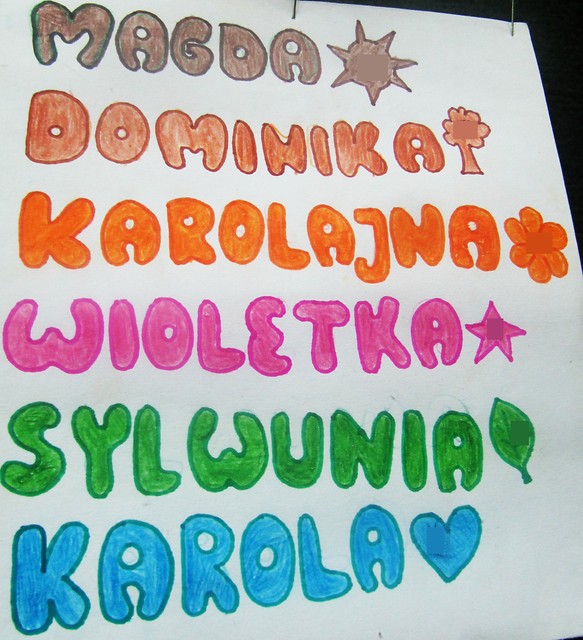 MAGDA
DOMINIKA
KAROLAJNA
WIOLETKA
SYLWUNIA
KAROLA